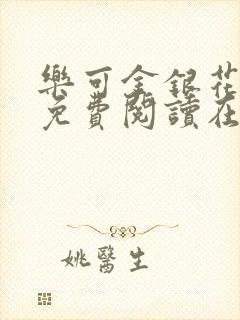 樂可金銀花
免費閱讀在
姚醫生